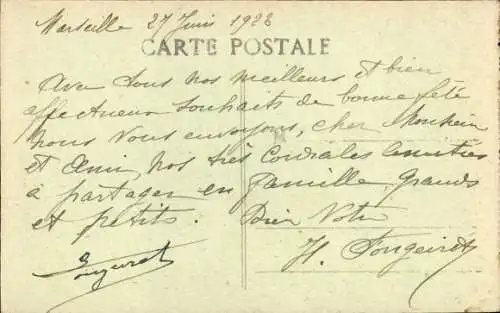 Marseille 27 Juin 1922
CARTE POSTALE
Avec tous nos meilleurs et bien
affectueux souhaits de bonne fête
nous vous envoyons, cher Monsieur
et Ami, nos très cordiales amitiés
à partager en famille, grands
et petits. Bien Votre
H. Fougeirol